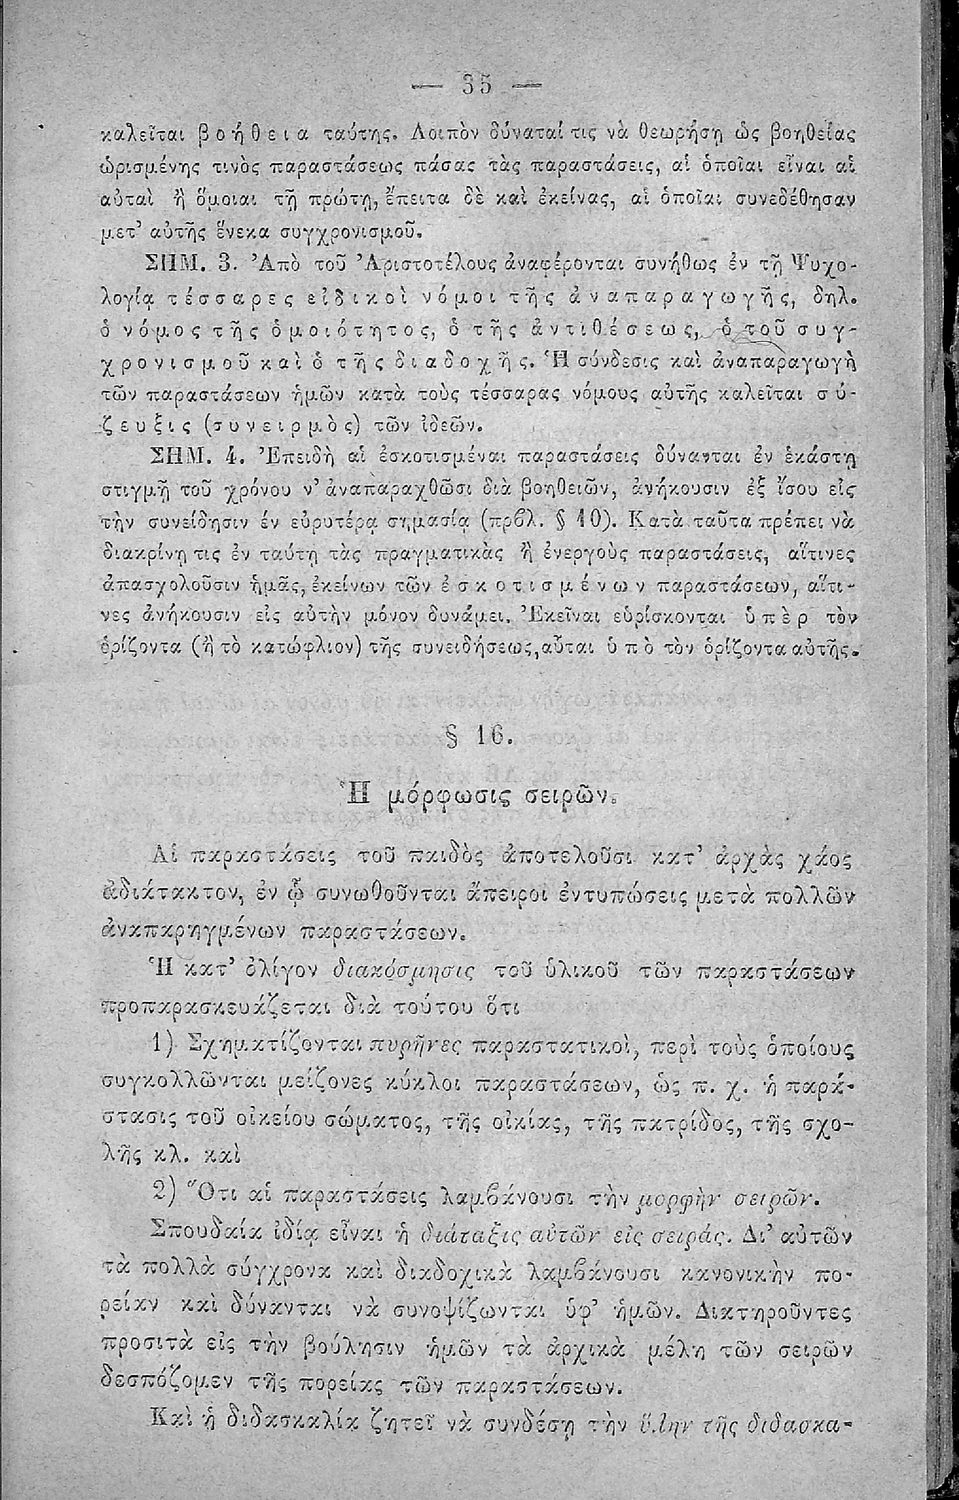 — 35 —
καλεῖται βοήθεια ταύτης. Λοιπὸν δύναταί τις νὰ θεωρήσῃ ὡς βοηθείας
ὡρισμένης τινὸς παραστάσεως πάσας τὰς παραστάσεις, αἱ ὁποῖαι εἶναι αἱ
αὐταὶ ἢ ὅμοιαι τῇ πρώτῃ, ἔπειτα δὲ καὶ ἐκείνας, αἱ ὁποῖαι συνεδέθησαν
μετ’ αὐτῆς ἕνεκα συγχρονισμοῦ.
ΣΗΜ. 3. Ἀπὸ τοῦ Ἀριστοτέλους ἀναφέρονται συνήθως ἐν τῇ Ψυχο-
λογίᾳ τέσσαρες εἰδικοὶ νόμοι τῆς ἀναπαραγωγῆς, δηλ.
ὁ νόμος τῆς ὁμοιότητος, ὁ τῆς ἀντιθέσεως, ὁ τοῦ συγ-
χρονισμοῦ καὶ ὁ τῆς διαδοχῆς. Ἡ σύνδεσις καὶ ἀναπαραγωγὴ
τῶν παραστάσεων ἡμῶν κατὰ τοὺς τέσσαρας νόμους αὐτῆς καλεῖται σύ-
ζευξις (συνειρμὸς) τῶν ἰδεῶν.
ΣΗΜ. 4. Ἐπειδὴ αἱ ἐσκοτισμέναι παραστάσεις δύνανται ἐν ἑκάστῃ
στιγμῇ τοῦ χρόνου ν’ ἀναπαραχθῶσι διὰ βοηθειῶν, ἀνήκουσιν ἐξ ἴσου εἰς
τὴν συνείδησιν ἐν εὐρυτέρᾳ σημασίᾳ (πρβλ. § 10). Κατὰ ταῦτα πρέπει νὰ
διακρίνῃ τις ἐν ταύτῃ τὰς πραγματικὰς ἢ ἐνεργοὺς παραστάσεις, αἵτινες
ἀπασχολοῦσιν ἡμᾶς, ἐκείνων τῶν ἐσκοτισμένων παραστάσεων, αἵτι-
νες ἀνήκουσιν εἰς αὐτὴν μόνον δυνάμει. Ἐκεῖναι εὑρίσκονται ὑπὲρ τὸν
ὁρίζοντα (ἢ τὸ κατώφλιον) τῆς συνειδήσεως, αὗται ὑπὸ τὸν ὁρίζοντα αὐτῆς.
§ 16.
Ἡ μόρφωσις σειρῶν.
Αἱ παραστάσεις τοῦ παιδὸς ἀποτελοῦσι κατ’ ἀρχὰς χάος
ἀδιάτακτον, ἐν ᾧ συνωθοῦνται ἄπειροι ἐντυπώσεις μετὰ πολλῶν
ἀναπαρηγμένων παραστάσεων.
Ἡ κατ’ ὀλίγον διακόσμησις τοῦ ὑλικοῦ τῶν παραστάσεων
προπαρασκευάζεται διὰ τούτου ὅτι
1) Σχηματίζονται πυρῆνες παραστατικοί, περὶ τοὺς ὁποίους
συγκολλῶνται μείζονες κύκλοι παραστάσεων, ὡς π. χ. ἡ παρά-
στασις τοῦ οἰκείου σώματος, τῆς οἰκίας, τῆς πατρίδος, τῆς σχο-
λῆς κλ. καὶ
2) Ὅτι αἱ παραστάσεις λαμβάνουσι τὴν μορφὴν σειρῶν.
Σπουδαία ἰδίᾳ εἶναι ἡ διάταξις αὐτῶν εἰς σειράς. Δι’ αὐτῶν
τὰ πολλὰ σύγχρονα καὶ διαδοχικὰ λαμβάνουσι κανονικὴν πο-
ρείαν καὶ δύνανται νὰ συνοψίζωνται ὑφ’ ἡμῶν. Διατηροῦντες
προσιτὰ εἰς τὴν βούλησιν ἡμῶν τὰ ἀρχικὰ μέλη τῶν σειρῶν
δεσπόζομεν τῆς πορείας τῶν παραστάσεων.
Καὶ ἡ διδασκαλία ζητεῖ νὰ συνδέσῃ τὴν ὕλην τῆς διδασκα-